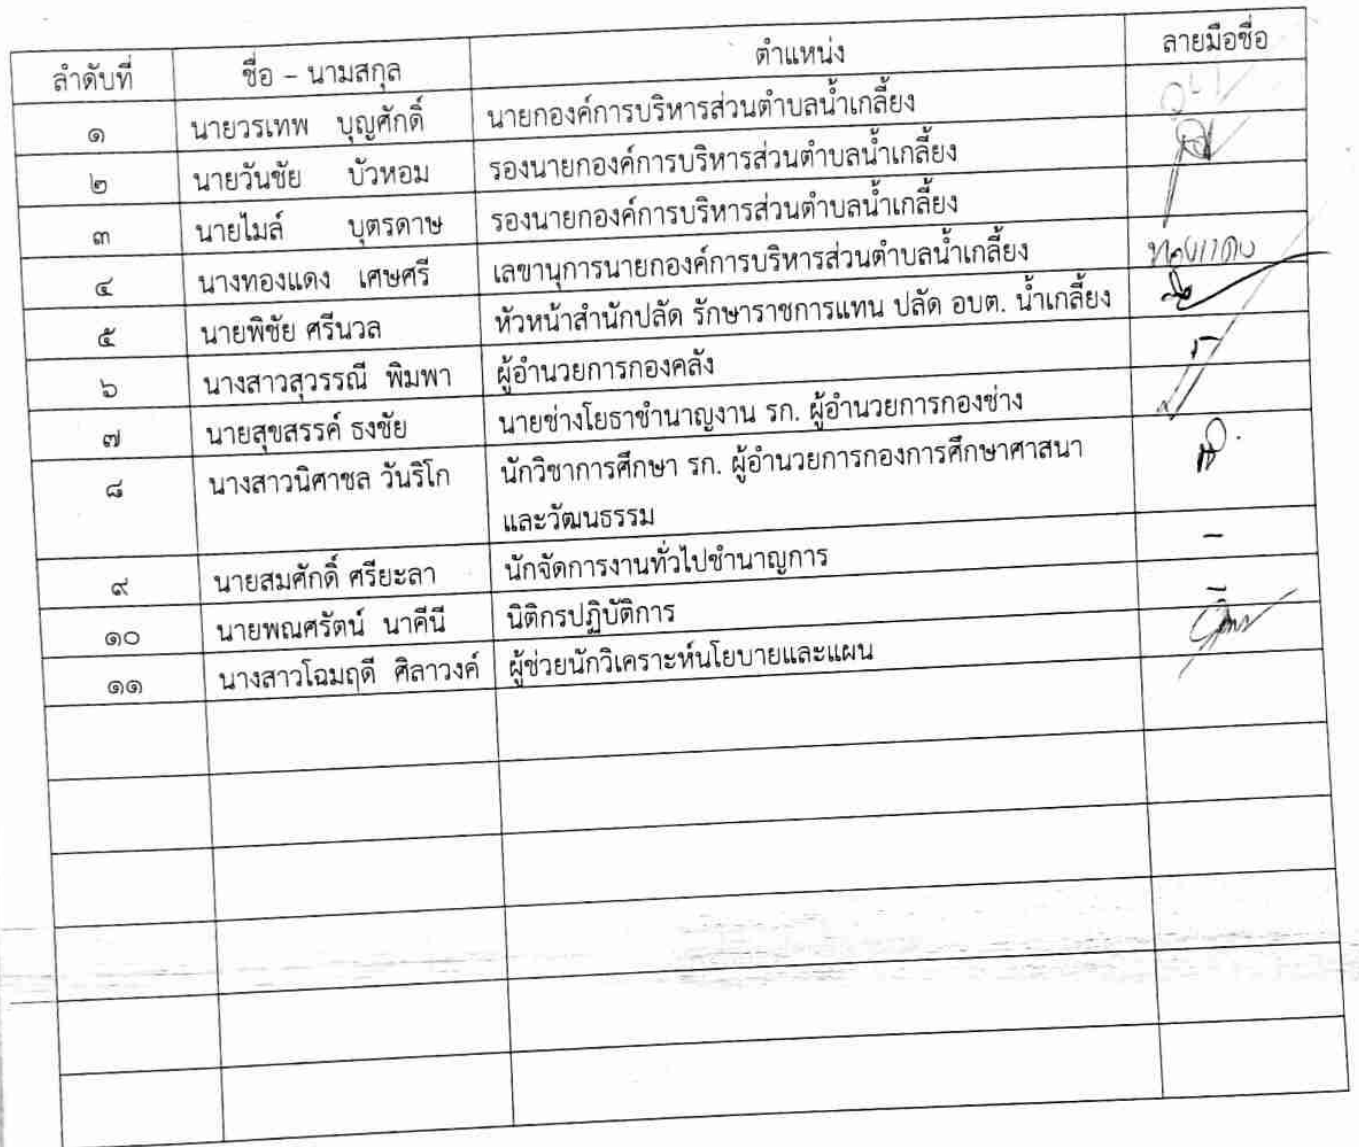 ลำดับที่ ชื่อ – นามสกุล ตำแหน่ง ลายมือชื่อ
๑ นายวรเทพ บุญศักดิ์ นายกองค์การบริหารส่วนตำบลน้ำเกลี้ยง
๒ นายวันชัย บัวหอม รองนายกองค์การบริหารส่วนตำบลน้ำเกลี้ยง
๓ นายไมล์ บุตรดาษ รองนายกองค์การบริหารส่วนตำบลน้ำเกลี้ยง
๔ นางทองแดง เศษศรี เลขานุการนายกองค์การบริหารส่วนตำบลน้ำเกลี้ยง ทองแดง
๕ นายพิชัย ศรีนวล หัวหน้าสำนักปลัด รักษาราชการแทน ปลัด อบต. น้ำเกลี้ยง
๖ นางสาวสุวรรณี พิมพา ผู้อำนวยการกองคลัง
๗ นายสุขสรรค์ ธงชัย นายช่างโยธาชำนาญงาน รก. ผู้อำนวยการกองช่าง
๘ นางสาวนิศาชล วันริโก นักวิชาการศึกษา รก. ผู้อำนวยการกองการศึกษาศาสนา
และวัฒนธรรม
๙ นายสมศักดิ์ ศรียะลา นักจัดการงานทั่วไปชำนาญการ –
๑๐ นายพณศรัตน์ นาคีนี นิติกรปฏิบัติการ –
๑๑ นางสาวโฉมฤดี ศิลาวงค์ ผู้ช่วยนักวิเคราะห์นโยบายและแผน